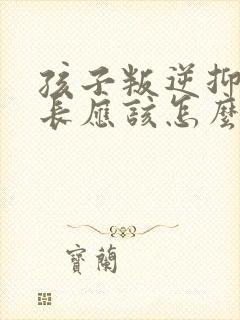 孩子叛逆抑
長應該怎麼
寶蘭